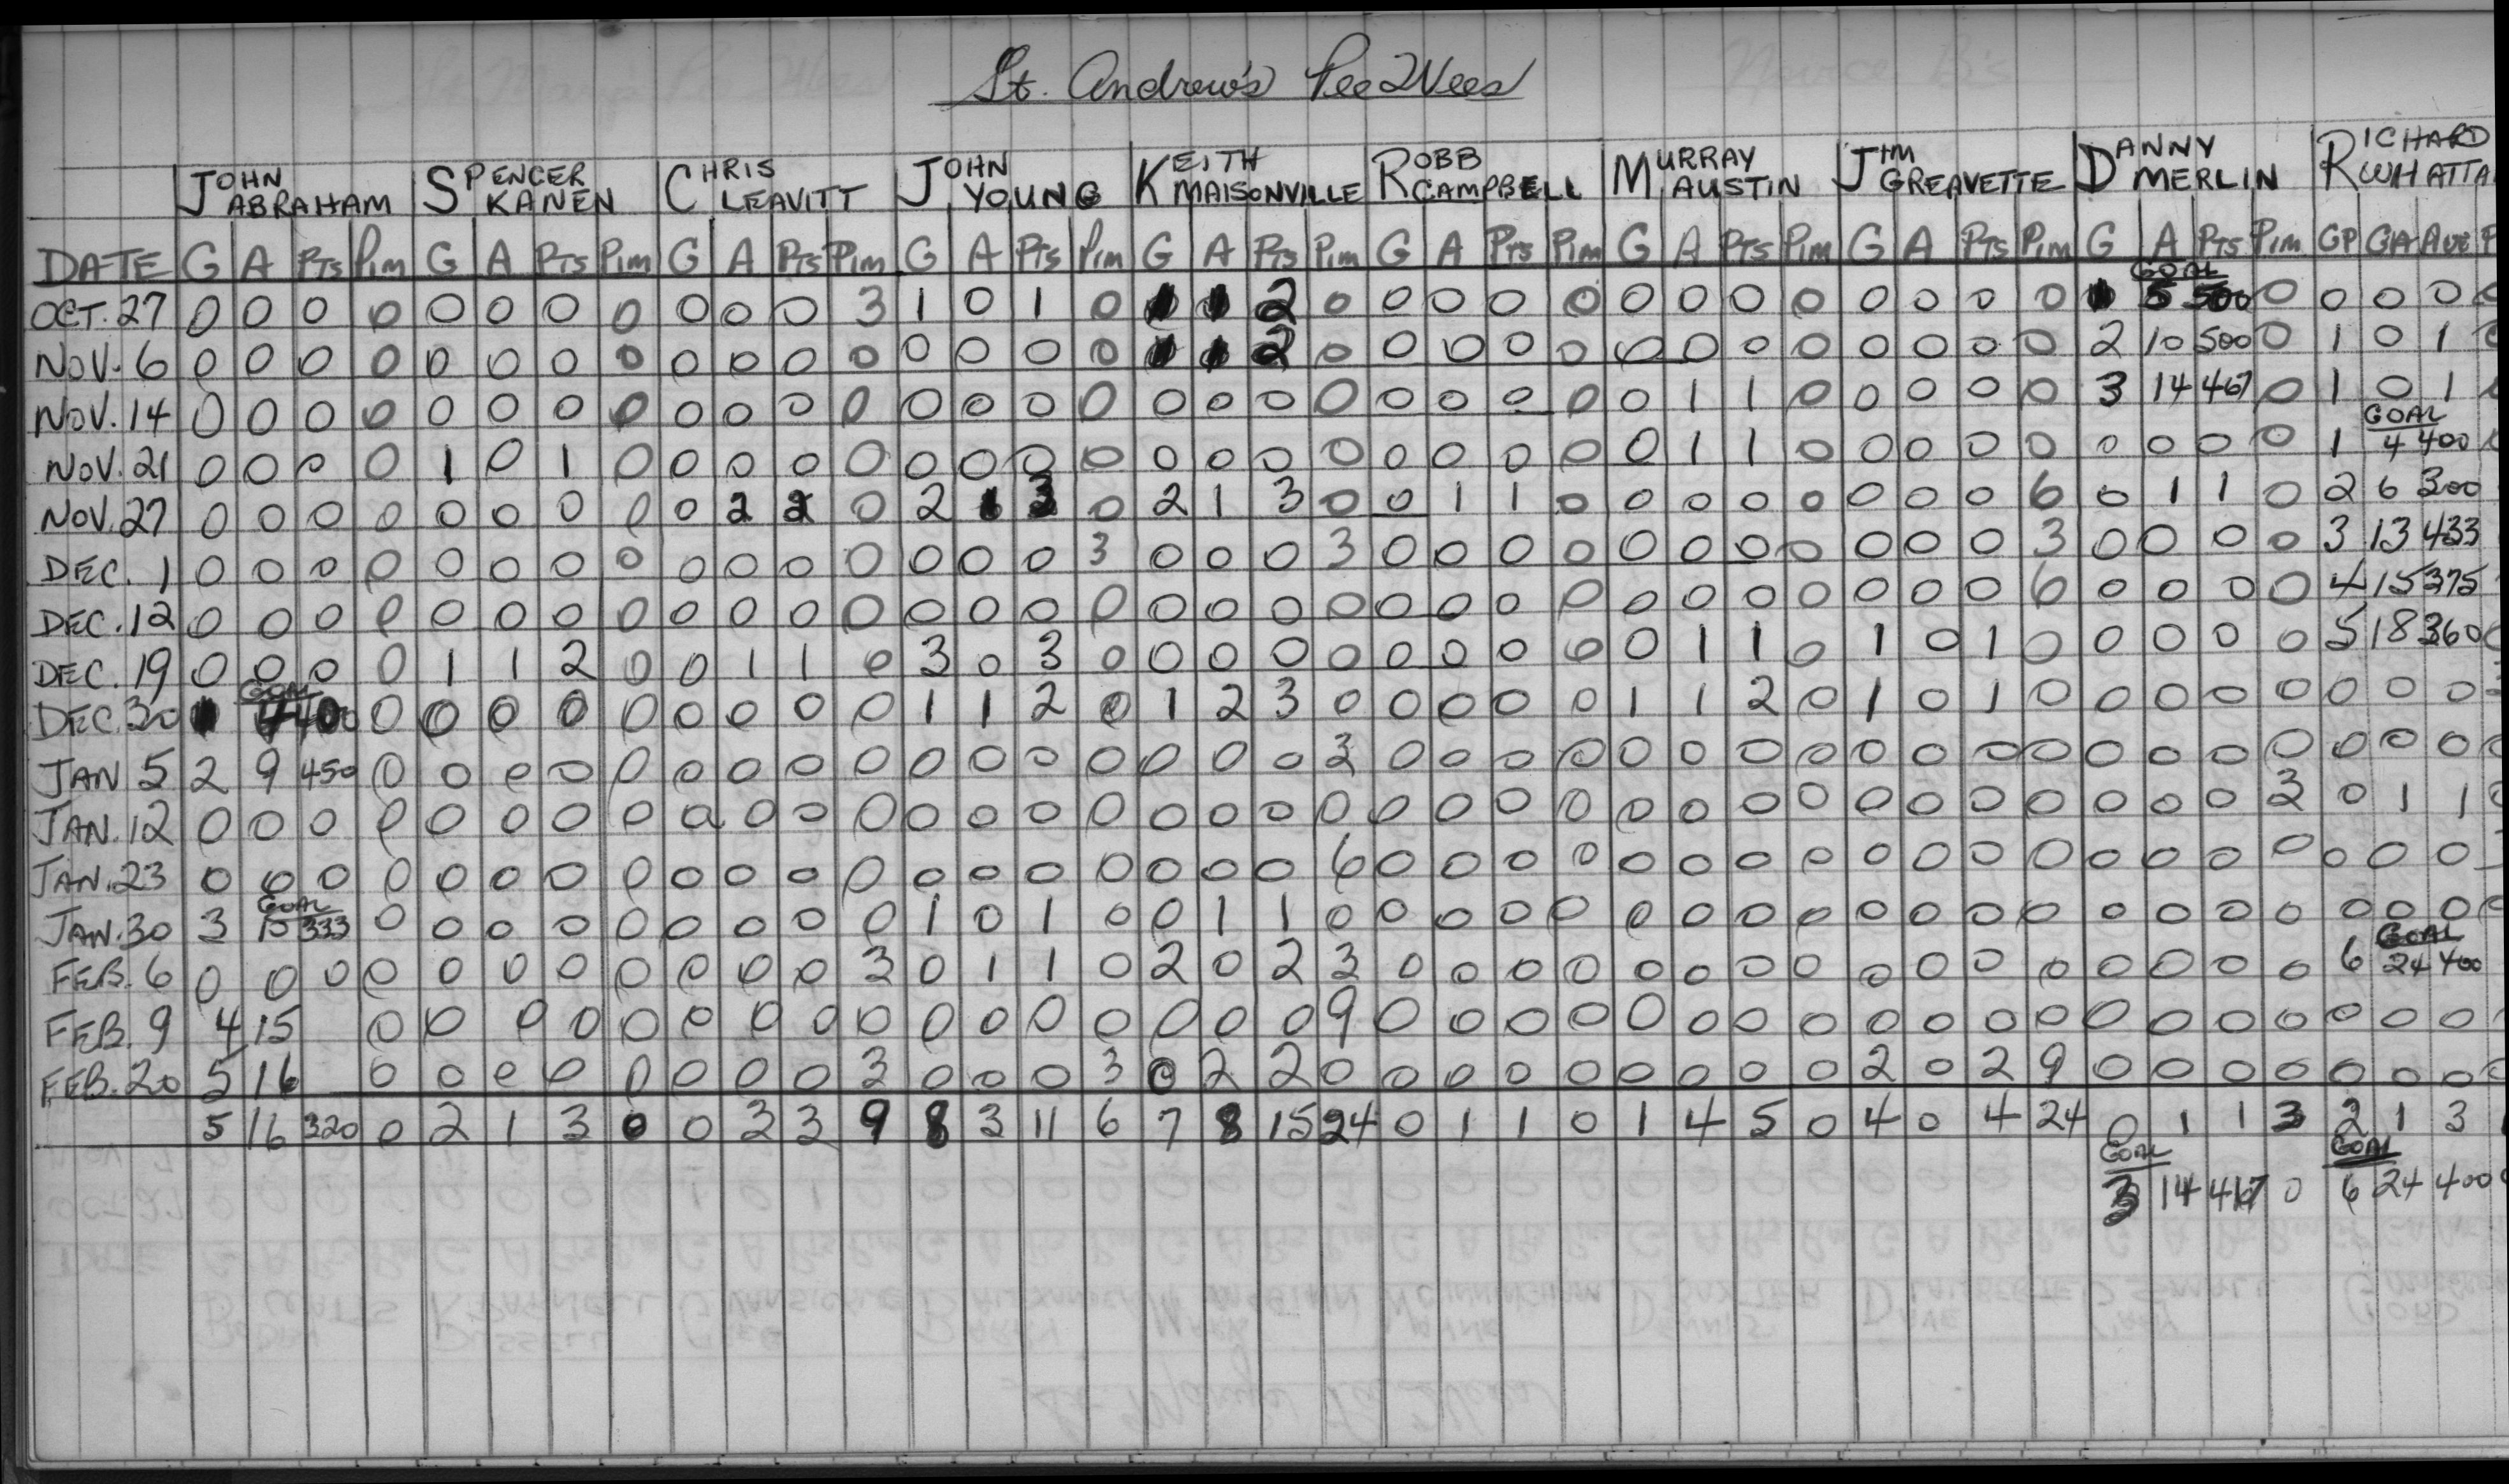 St. Andrew's Pee Wees
JOHN ABRAHAM SPENCER KANEN CHRIS LEAVITT JOHN YOUNG KEITH MAISONVILLE ROBB CAMPBELL MURRAY AUSTIN JIM GREAVETTE DANNY MERLIN RICHARD WHATTA
DATE G A Pts Pim G A Pts Pim G A Pts Pim G A Pts Pim G A Pts Pim G A Pts Pim G A Pts Pim G A Pts Pim G A Pts Pim GP GA Ave P
GOAL
OCT. 27 0 0 0 0 0 0 0 0 0 0 0 3 1 0 1 0 1 1 2 0 0 0 0 0 0 0 0 0 0 0 0 0 1 5 500 0 0 0 0
NOV. 6 0 0 0 0 0 0 0 0 0 0 0 0 0 0 0 0 1 1 2 0 0 0 0 0 0 0 0 0 0 0 0 0 2 10 500 0 1 0 1
NOV. 14 0 0 0 0 0 0 0 0 0 0 0 0 0 0 0 0 0 0 0 0 0 0 0 0 0 1 1 0 0 0 0 0 3 14 467 0 1 0 1
GOAL
NOV. 21 0 0 0 0 1 0 1 0 0 0 0 0 0 0 0 0 0 0 0 0 0 0 0 0 0 1 1 0 0 0 0 0 0 0 0 0 1 4 400
NOV. 27 0 0 0 0 0 0 0 0 0 2 2 0 2 1 3 0 2 1 3 0 0 1 1 0 0 0 0 0 0 0 0 6 0 1 1 0 2 6 300
DEC. 1 0 0 0 0 0 0 0 0 0 0 0 0 0 0 0 3 0 0 0 3 0 0 0 0 0 0 0 0 0 0 0 3 0 0 0 0 3 13 433
DEC. 12 0 0 0 0 0 0 0 0 0 0 0 0 0 0 0 0 0 0 0 0 0 0 0 0 0 0 0 0 0 0 0 6 0 0 0 0 4 15 375
DEC. 19 0 0 0 0 1 1 2 0 0 1 1 0 3 0 3 0 0 0 0 0 0 0 0 0 0 1 1 0 1 0 1 0 0 0 0 0 5 18 360
GOAL
DEC. 30 1 4 400 0 0 0 0 0 0 0 0 0 1 1 2 0 1 2 3 0 0 0 0 0 1 1 2 0 1 0 1 0 0 0 0 0 0 0 0
JAN 5 2 9 450 0 0 0 0 0 0 0 0 0 0 0 0 0 0 0 0 3 0 0 0 0 0 0 0 0 0 0 0 0 0 0 0 0 0 0 0
JAN. 12 0 0 0 0 0 0 0 0 0 0 0 0 0 0 0 0 0 0 0 0 0 0 0 0 0 0 0 0 0 0 0 0 0 0 0 3 0 1 1
JAN. 23 0 0 0 0 0 0 0 0 0 0 0 0 0 0 0 0 0 0 0 6 0 0 0 0 0 0 0 0 0 0 0 0 0 0 0 0 0 0 0
GOAL
JAN. 30 3 15 333 0 0 0 0 0 0 0 0 0 1 0 1 0 0 1 1 0 0 0 0 0 0 0 0 0 0 0 0 0 0 0 0 0 0 0 0
GOAL
FEB. 6 0 0 0 0 0 0 0 0 0 0 0 3 0 1 1 0 2 0 2 3 0 0 0 0 0 0 0 0 0 0 0 0 0 0 0 0 6 24 400
FEB. 9 4 15 0 0 0 0 0 0 0 0 0 0 0 0 0 0 0 0 9 0 0 0 0 0 0 0 0 0 0 0 0 0 0 0 0 0 0 0
FEB. 20 5 16 0 0 0 0 0 0 0 0 3 0 0 0 3 0 2 2 0 0 0 0 0 0 0 0 0 2 0 2 9 0 0 0 0 0 0 0
5 16 320 0 2 1 3 0 0 3 3 9 8 3 11 6 7 8 15 24 0 1 1 0 1 4 5 0 4 0 4 24 0 1 1 3 2 1 3
GOAL GOAL
3 14 467 0 6 24 400